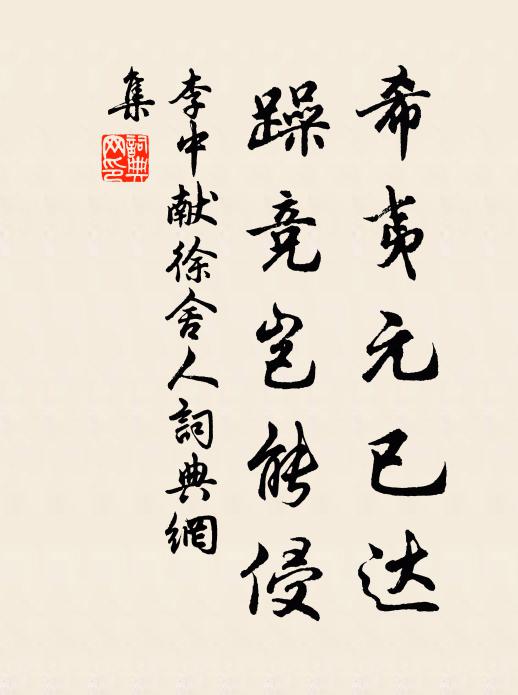 希夷元已达
躁竞岂能侵
李中献徐舍人詞典網
集
詞典
网印